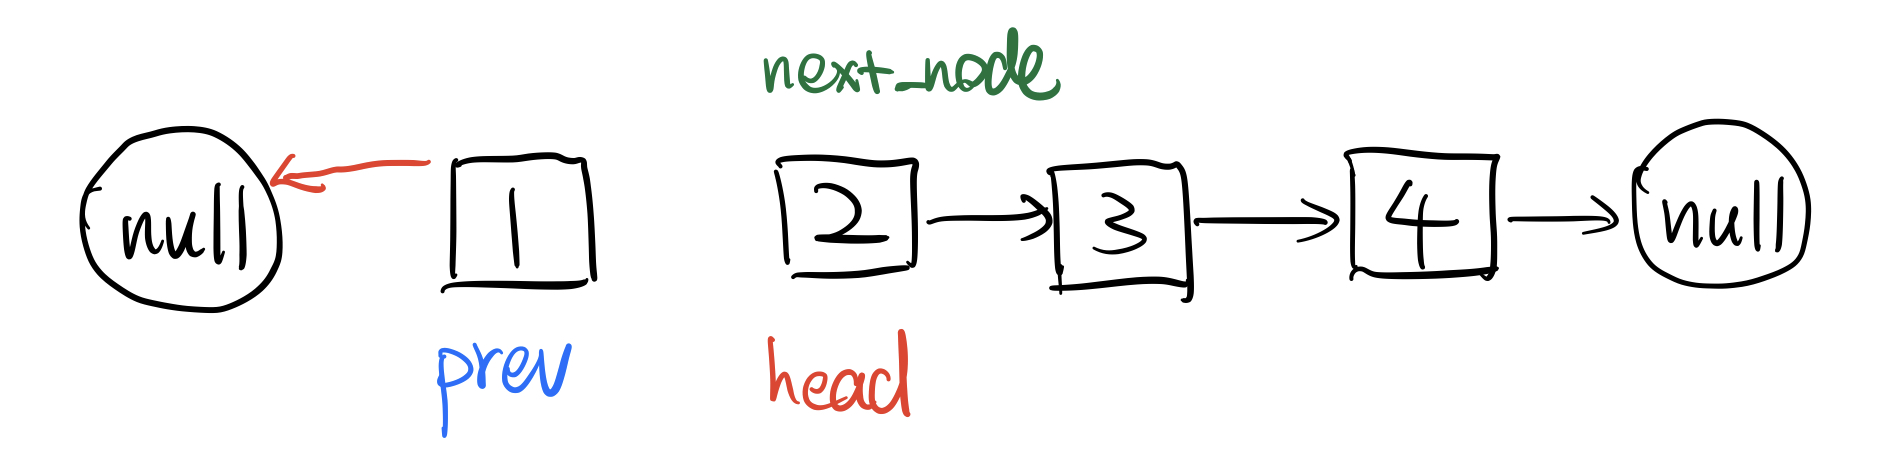 next_node
null 1 2 3 4 null
prev head